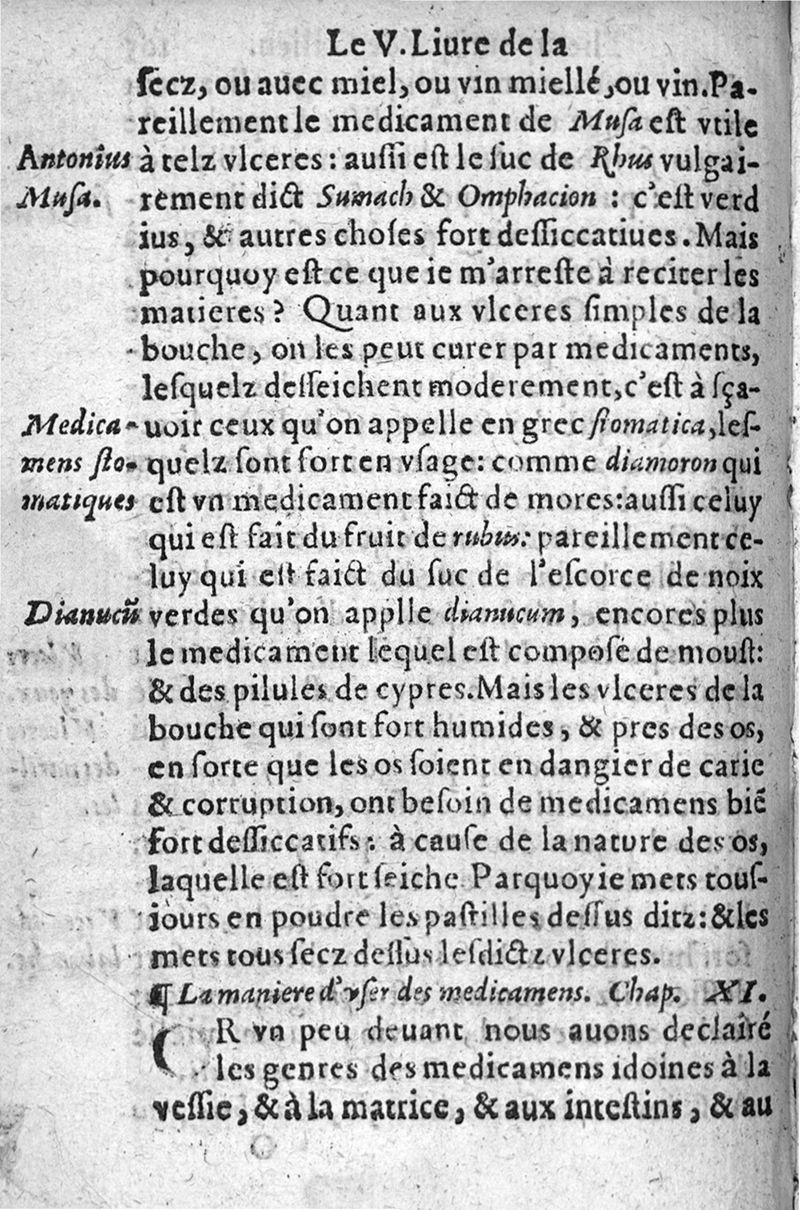 Le V. Liure de la
ſecz, ou auec miel, ou vin miellé, ou vin. Pa-
reillement le medicament de Muſa eſt vtile
Antonius
Muſa.
à telz vlceres : auſſi eſt le ſuc de Rhus vulgai-
rement dict Sumach & Omphacion : c'eſt verd
ius, & autres choſes fort deſſiccatiues. Mais
pourquoy eſt ce que ie m'arreſte à reciter les
matieres ? Quant aux vlceres ſimples de la
bouche, on les peut curer par medicaments,
leſquelz deſſeichent moderement, c'eſt à ſça-
Medica-
mens ſto-
matiques
uoir ceux qu'on appelle en grec ſtomatica, leſ-
quelz ſont fort en vſage : comme diamoron qui
eſt vn medicament faict de mores : auſſi celuy
qui eſt fait du fruit de rubus : pareillement ce-
luy qui eſt faict du ſuc de l'eſcorce de noix
Dianucū
verdes qu'on applle dianucum, encores plus
le medicament lequel eſt compoſé de mouſt :
& des pilules de cypres. Mais les vlceres de la
bouche qui ſont fort humides, & pres des os,
en ſorte que les os ſoient en dangier de carie
& corruption, ont beſoin de medicamens biē
fort deſſiccatifs : à cauſe de la nature des os,
laquelle eſt fort ſeiche. Parquoy ie mets touſ-
iours en poudre les paſtilles deſſus ditz : & les
mets tous ſecz deſſus leſdictz vlceres.
¶ La maniere d'vſer des medicamens. Chap. XI.
OR vn peu deuant nous auons declairé
les genres des medicamens idoines à la
veſſie, & à la matrice, & aux inteſtins, & au